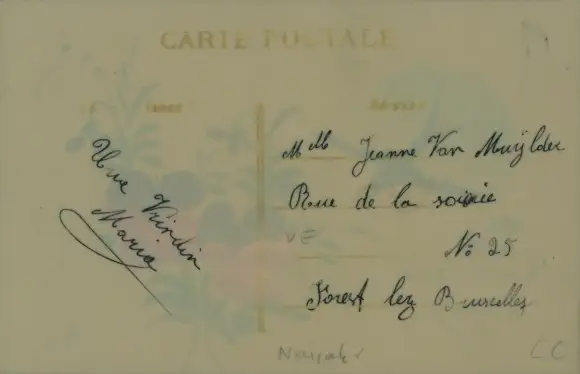 CARTE POSTALE
Une
Maria
Mlle Jeanne Van Muÿlder
Rue de la soierie
VE
No 25
Forest lez Bruxelles
CC